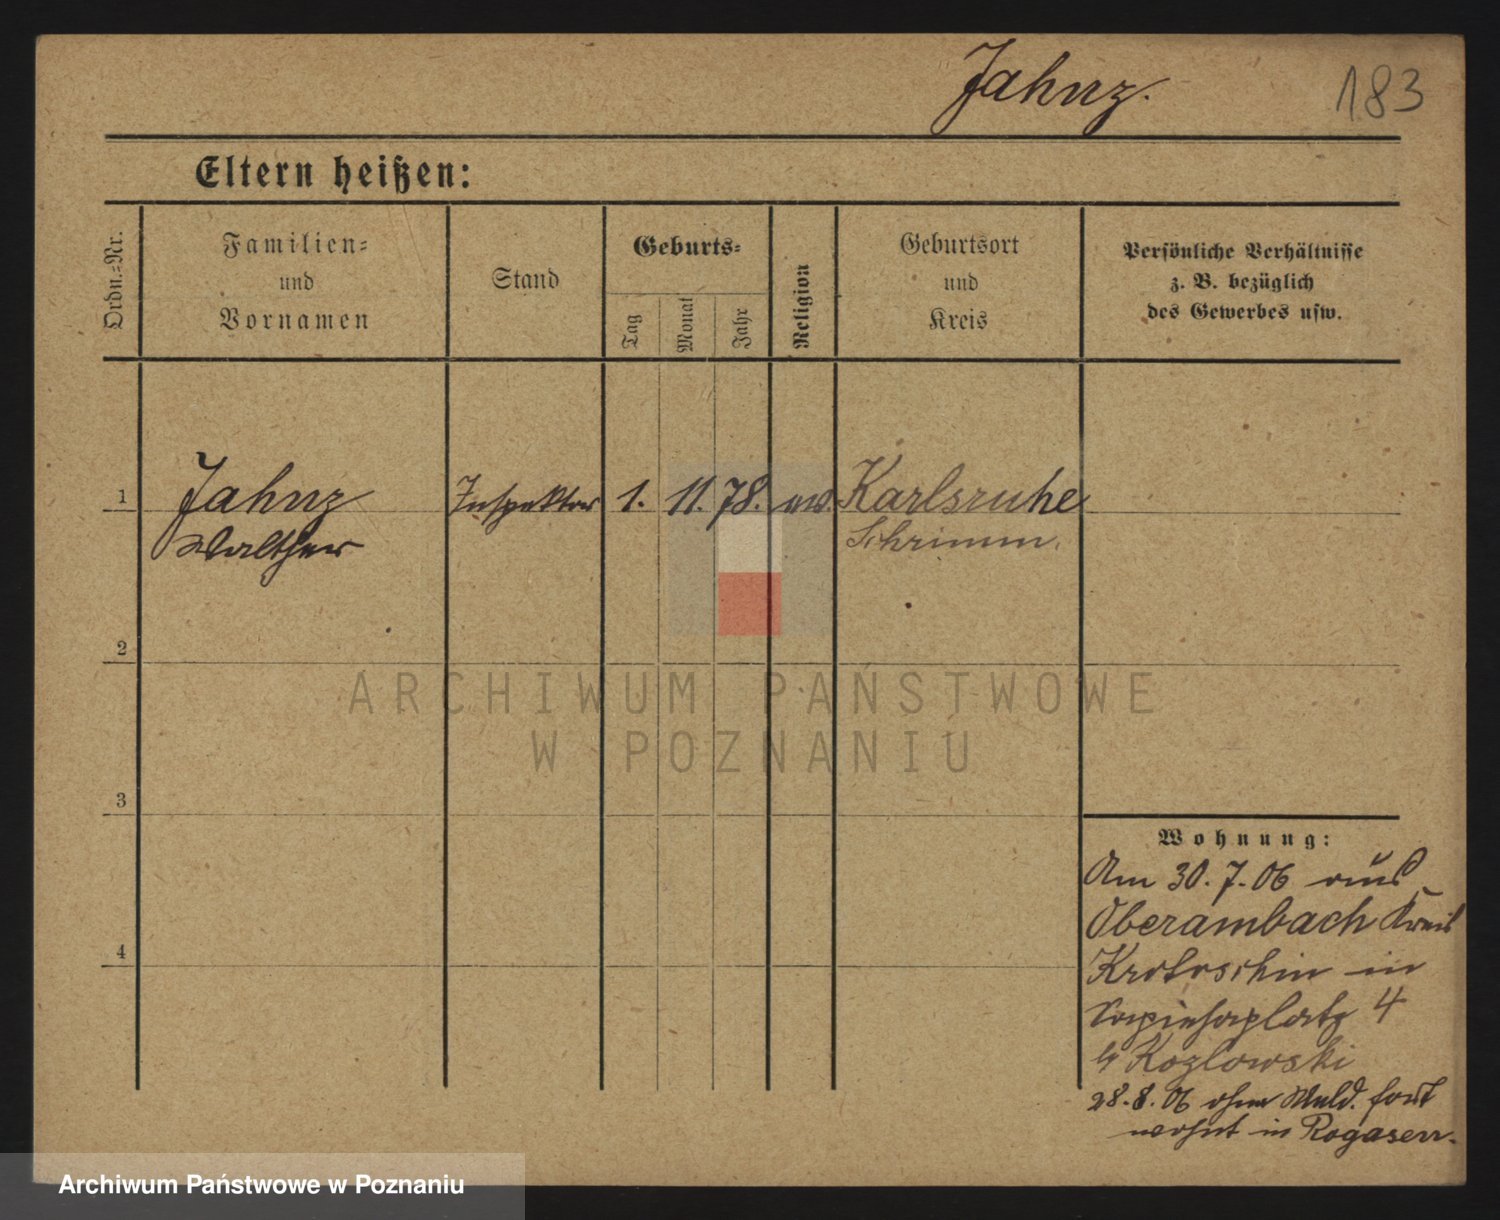 Jahnz.
183
Eltern heißen:
Ordn.-Nr.
Familien-
und
Vornamen
Stand
Geburts-
Tag
Monat
Jahr
Religion
Geburtsort
und
Kreis
Persönliche Verhältnisse
z. B. bezüglich
des Gewerbes usw.
1
Jahnz
Walther
Inspektor
1.
11.
78.
ev.
Karlsruhe
Schrimm.
2
3
4
Wohnung:
Am 30.7.06 aus
Oberambach Kreis
Krotoschin in
Sapiehaplatz 4
b/ Kozlowski
28.8.06 ohne Meld. fort
wohnt in
ARCHIWUM PAŃSTWOWE
W POZNANIU
Archiwum Państwowe w Poznaniu